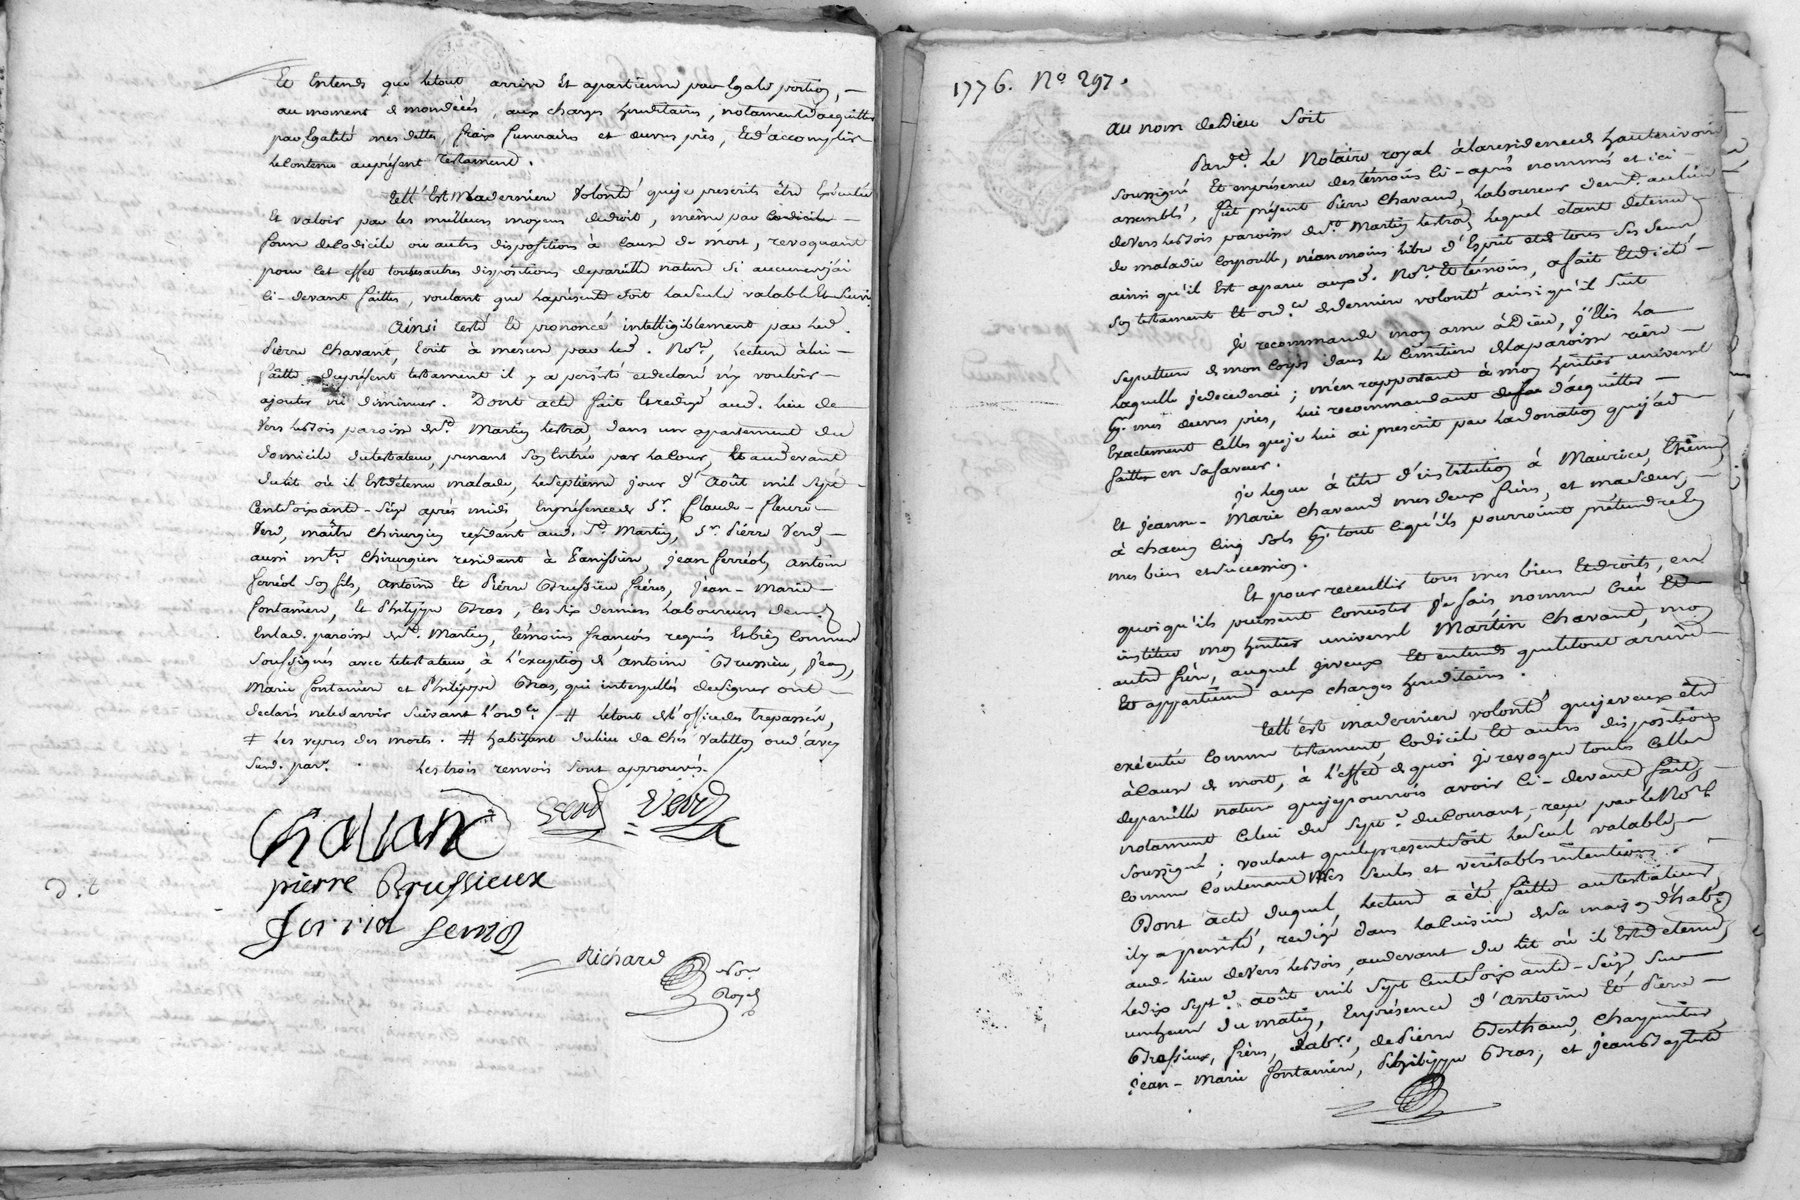 Et entends que letout arrive Et apartienne par Egale portion,
au moment de mondécés, aux charges hereditaires, notament d'acquitter
par Egalité mes dettes, fraix funeraires et œuvres pies, Et d'accomplir
lecontenu auprésent testament.
telle Est Madernière Volonté queje prescrits être Exécutée
Et valoir par les meilleurs moyens dedroit, même par codicile
forme decodicile ou autres dispositions à cause de mort, revoquant
pour cet effet toutesautres dispositions depareille nature si aucunesj'ai
ci-devant faittes, voulant que laprésente soit laseule valable Et suivie
Ainsi testé Et prononcé intelligiblement par led.
Pierre Chavant, Ecrit à mesure par led. Nore, lecture àlui
faitte duprésent testament il y a persisté et declaré n'y vouloir
ajouter ni diminuer. Dont acte fait Et redigé aud. lieu de
Vers lesbois paroisse de St Martin lestra, dans un apartement du
domicile dutestateur, prenant son Entrée par lacour, Et audevant
dulit où il Estdétenu malade, leseptième jour d'Août mil sept
Centsoixante-Seize après midi, Enprésence de Sr. Claude-fleuri
Verd, maître chirurgien residant aud. St. Martin, Sr. Pierre Verd,
aussi mtre chirurgien residant à Panissière, jean ferréol, antoine
ferréol son fils, antoine Et Pierre Brussieu frères, jean-Marie
fontanière, Et Philippe Bras, les six derniers laboureurs demt
Enlad. paroisse de St Martin, témoins françois requis Et bien Connus
Soussignés avec letestateur, à l'exception de antoine Brussieu, jean,
Marie fontanière et Philippe Bras, qui interpellés designer ont
declaré nelesavoir suivant l'ordce # letout del'office des trepassés,
+ les repos des morts. # habitant dulieu de chés Valetton oud'avez
Susd. parse. les trois renvois sont approuvés.
Chavant Verd = Verd
pierre Brussieux
Ferriol Ferriol
Richard
Nore
Royal
D. t.
1776. No 297.
Au nom deDieu Soit
Pardt. Le Notaire royal àlaresidence de hauterivoire
soussigné Et enprésence destémoins ci-après nommés et ici
assemblés, fut présent Pierre Chavand, laboureur demt. aulieu
deVers lesbois paroisse de St Martin lestra, lequel etant detenu
de maladie corporelle, néanmoins libre d'Esprit et de tous ses sens
ainsi qu'il Est aparu auxd. Nore. Et témoins, afait Et dicté
son testament Et ordce dedernière volonté ainsi qu'il suit
Je recommande mon ame àDieu, j'Elis la
sepulture de mon corps dans le Cimetière delaparoisse rière
laquelle jedecederai; m'en rapportant à mon héritier universel
pr. mes œuvres pies, lui recommandant d'acquitter
Exactement celles queje lui ai prescrit par ladonation quej'ai
faitte en safaveur.
Je legue à titre d'institution à Maurice, Etienne
Et jeanne-Marie Chavand mes deux frères, et masœur,
à chacun cinq sols pr. tout cequ'ils pourroient prétendre En
mes biens etsuccession.
Et pour recueillir tous mes biens Et droits, en
quoiqu'ils puissent consister je fais nomme créé Et
institue mon héritier universel Martin Chavant, mon
autre frère, auquel jeveux Et entends que letout arrive
Et appartienne aux charges hereditaires.
telle est madernière volonté quejeveux être
exécutée comme testament, Codicile Et autres dispositions
àcause de mort, à l'effet de quoi je revoque toutes celles
depareille nature quejepourrois avoir ci-devant fait,
notament celui du Septe. ducourant, reçu par le Nore
soussigné; voulant queleprésentsoit leseul valable,
comme contenant Mes seules et veritables intentions.
Dont acte duquel lecture aété faitte autestateur,
il y a persisté, redigé dans lacuisine de sa maison d'habon
aud. lieu deVers lesbois, audevant du lit où il Estdetenu,
ledix septe. août mil sept centsoixante-Seize sur
unzheure du matin, Enprésence d'antoine Et Pierre
Brossieux, frères, labrs., de Pierre Berthaud, charpentier,
jean-Marie fontanière, Philippe Bras, et jeanBaptiste